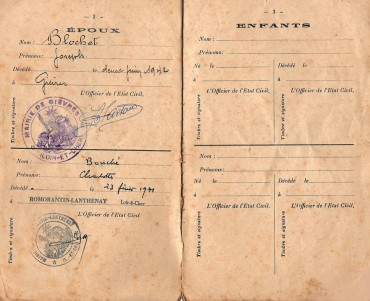 — 2 —
ÉPOUX
Nom: Blochet
Prénoms: Joseph
Décédé le deux juin 1942
à Gièvres
L'Officier de l'Etat Civil,
Timbre et signature
MAIRIE DE GIÈVRES
(LOIR-ET-CHER)
Nom: Bouché
Prénoms: Charlotte
Décédé le 23 février 1971
à ROMORANTIN-LANTHENAY Loir-&-Cher
L'Officier de l'Etat Civil
Timbre et signature
— 3 —
ENFANTS
Nom:
Prénoms:
Né le
Décédé le
à
à
L'Officier de l'Etat Civil,
L'Officier de l'Etat Civil,
Timbre et signature
Timbre et signature
Nom:
Prénoms:
Né le
Décédé le
à
à
L'Officier de l'Etat Civil,
L'Officier de l'Etat Civil,
Timbre et signature
Timbre et signature